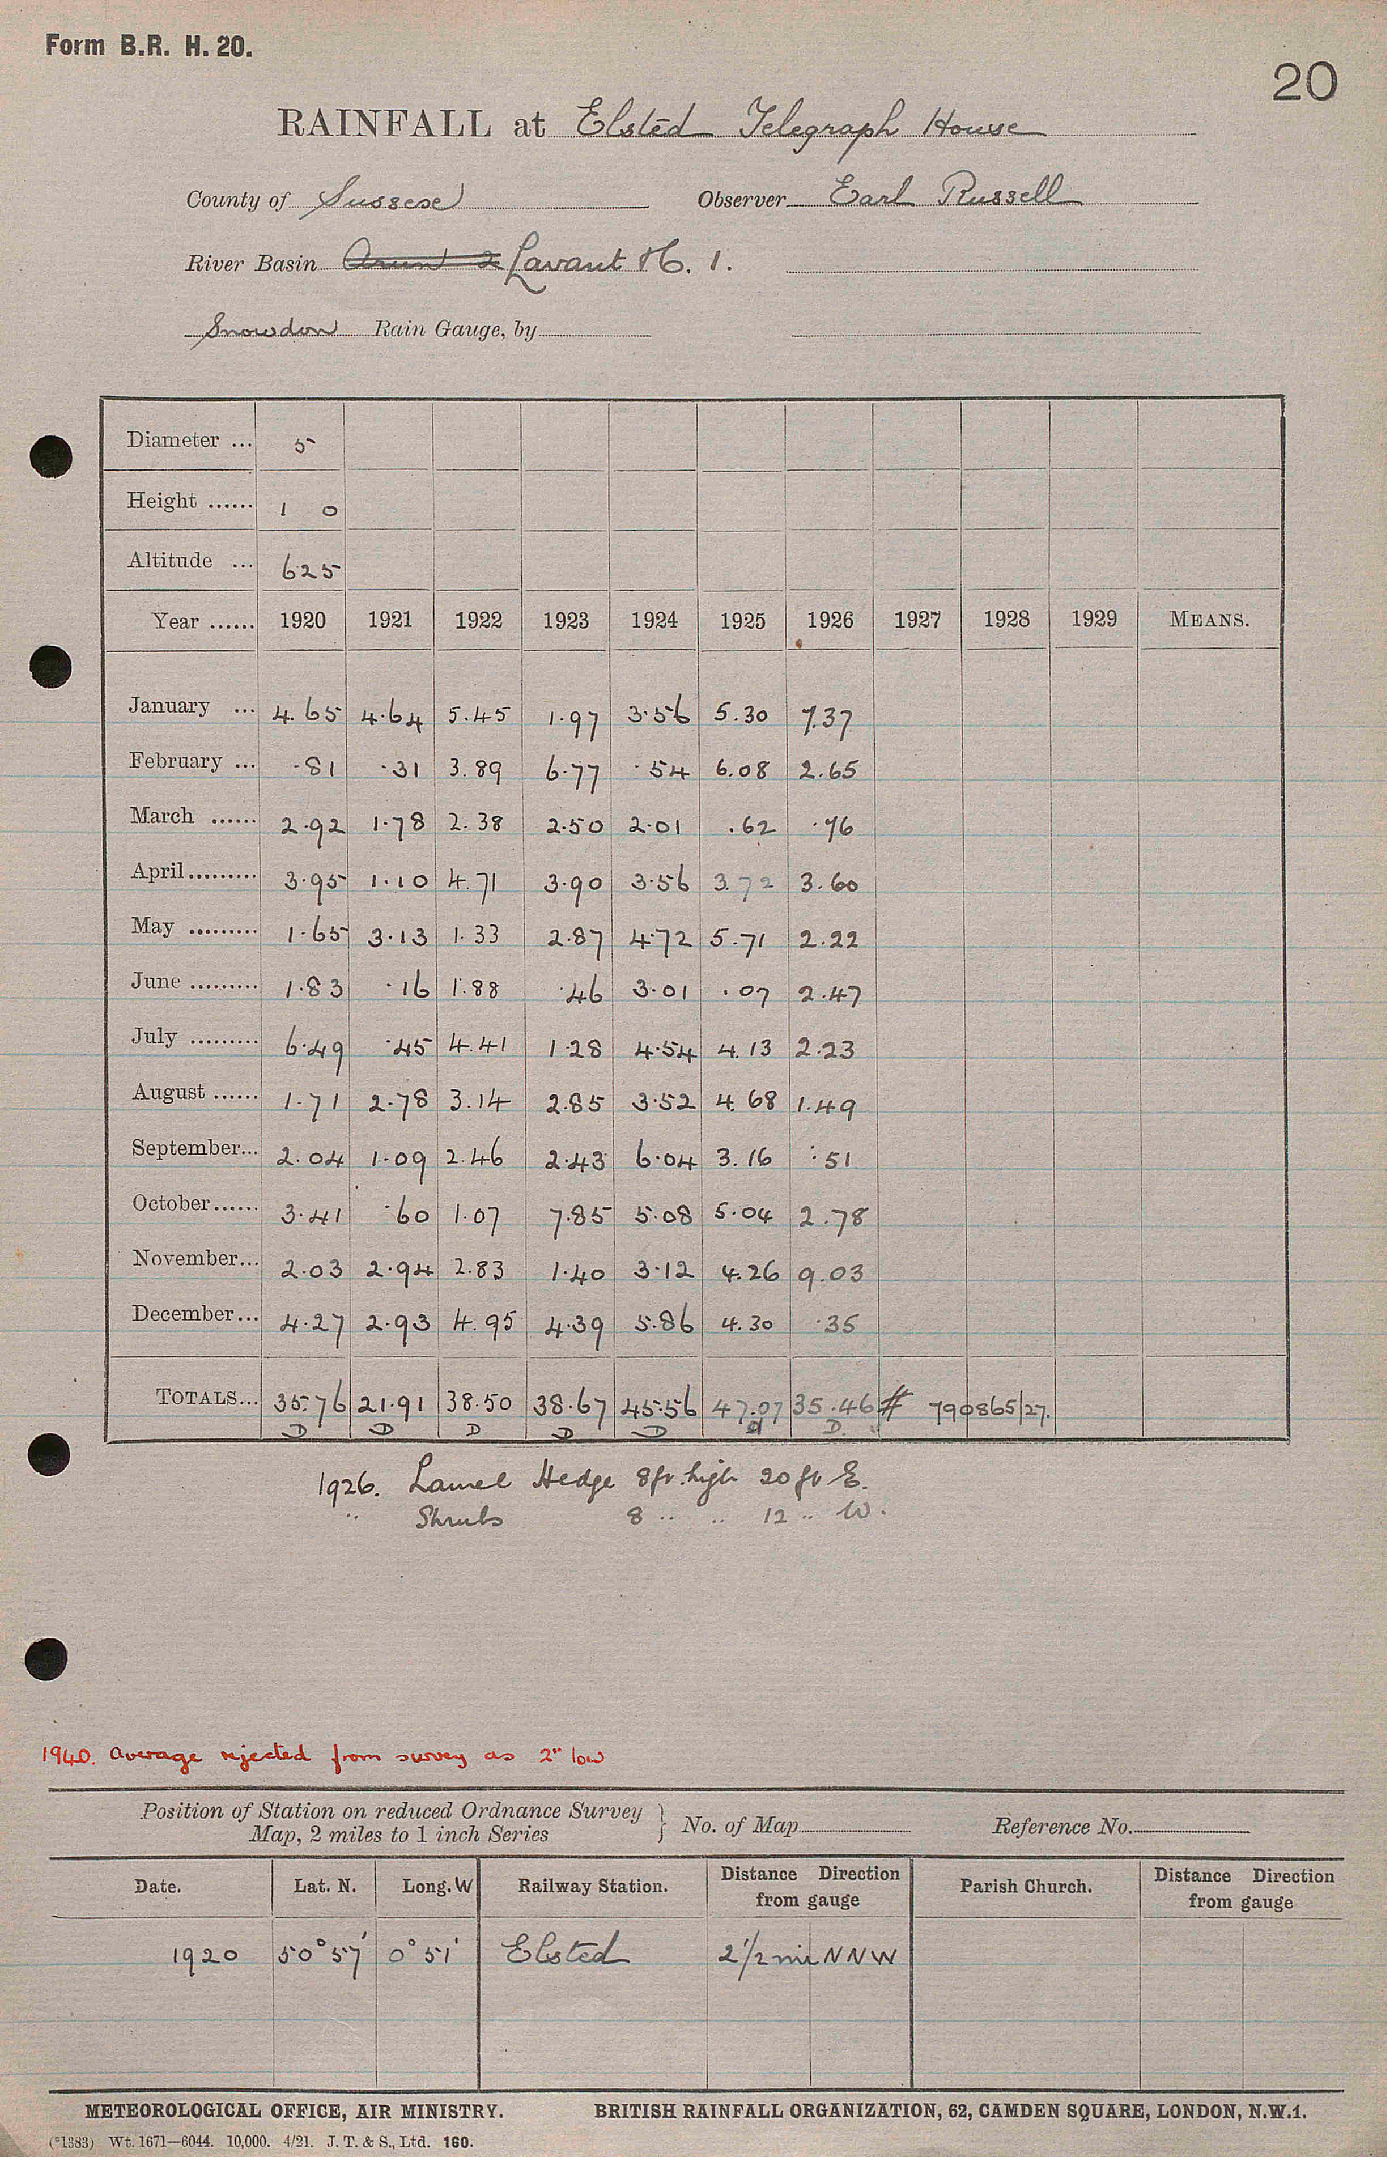 Form B.R. H. 20.
20
RAINFALL at Elsted Telegraph House
County of Sussex Observer Earl Russell
River Basin Arun & Lavant H. 1.
Snowdon Rain Gauge, by
Diameter ... 5
Height ...... 1 0
Altitude ... 625
Year ...... 1920 1921 1922 1923 1924 1925 1926 1927 1928 1929 MEANS.
January ... 4.65 4.64 5.45 1.97 3.56 5.30 7.37
February ... .81 .31 3.89 6.77 .54 6.08 2.65
March ...... 2.92 1.78 2.38 2.50 2.01 .62 .76
April ......... 3.95 1.10 4.71 3.90 3.56 3.72 3.60
May ......... 1.65 3.13 1.33 2.87 4.72 5.71 2.22
June ......... 1.83 .16 1.88 .46 3.01 .07 2.47
July ......... 6.49 .45 4.41 1.28 4.54 4.13 2.23
August ...... 1.71 2.78 3.14 2.85 3.52 4.68 1.49
September... 2.04 1.09 2.46 2.43 6.04 3.16 .51
October...... 3.41 .60 1.07 7.85 5.08 5.04 2.78
November... 2.03 2.94 2.83 1.40 3.12 4.26 9.03
December... 4.27 2.93 4.95 4.39 5.86 4.30 .35
TOTALS... 35.76 21.91 38.50 38.67 45.56 47.07 35.46 # 790865/27.
D D D D D d D.
1926. Laurel Hedge 8ft. high 20 ft E.
" Shrubs 8 " " 12 " W.
1940. Average rejected from survey as 2" low
Position of Station on reduced Ordnance Survey Map, 2 miles to 1 inch Series } No. of Map Reference No.
Date. Lat. N. Long. W Railway Station. Distance Direction from gauge Parish Church. Distance Direction from gauge
1920 50° 57' 0° 51' Elsted 2 1/2 mi NNW
METEOROLOGICAL OFFICE, AIR MINISTRY. BRITISH RAINFALL ORGANIZATION, 62, CAMDEN SQUARE, LONDON, N.W.1.
(*1383) Wt. 1671—6044. 10,000. 4/21. J. T. & S., Ltd. 160.